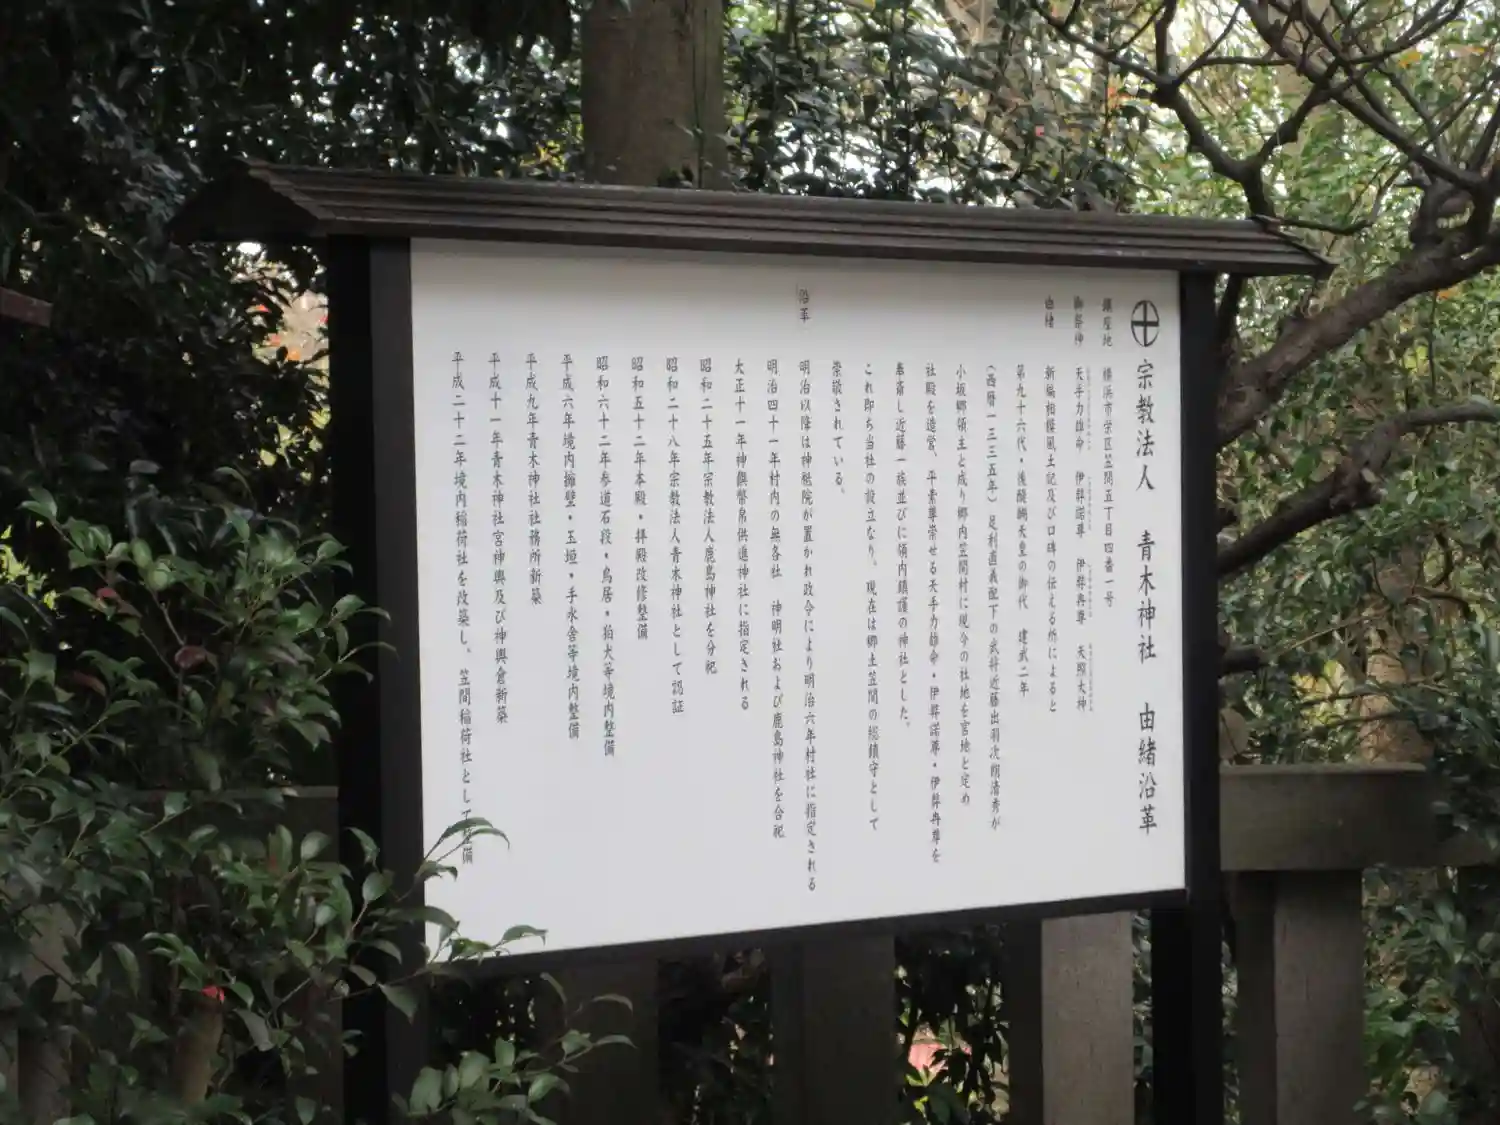 宗教法人　青木神社　由緒沿革
鎮座地　横浜市栄区笠間五丁目四番一号
御祭神　天手力雄命　伊弉諾尊　伊弉冉尊　天照大神
由緒　新編相模風土記及び口碑の伝える所によると
第九十六代・後醍醐天皇の御代　建武二年
（西暦一三三五年）足利直義配下の武将近藤出羽次郎清秀が
小坂郷領主と成り郷内笠間村に現今の社地を宮地と定め
社殿を造営、平素尊崇せる天手力雄命・伊弉諾尊・伊弉冉尊を
奉斎し近藤一族並びに領内鎮護の神社とした。
これ即ち当社の設立なり。現在は郷土笠間の総鎮守として
崇敬されている。
沿革　明治以降は神祇院が置かれ政令により明治六年村社に指定される
明治四十一年村内の無各社　神明社および鹿島神社を合祀
大正十一年神饌幣帛供進神社に指定される
昭和二十五年宗教法人鹿島神社を分祀
昭和二十八年宗教法人青木神社として認証
昭和五十二年本殿・拝殿改修整備
昭和六十二年参道石段・鳥居・狛犬等境内整備
平成六年境内擁壁・玉垣・手水舎等境内整備
平成九年青木神社社務所新築
平成十一年青木神社宮神輿及び神輿倉新築
平成二十二年境内稲荷社を改築し、笠間稲荷社として整備